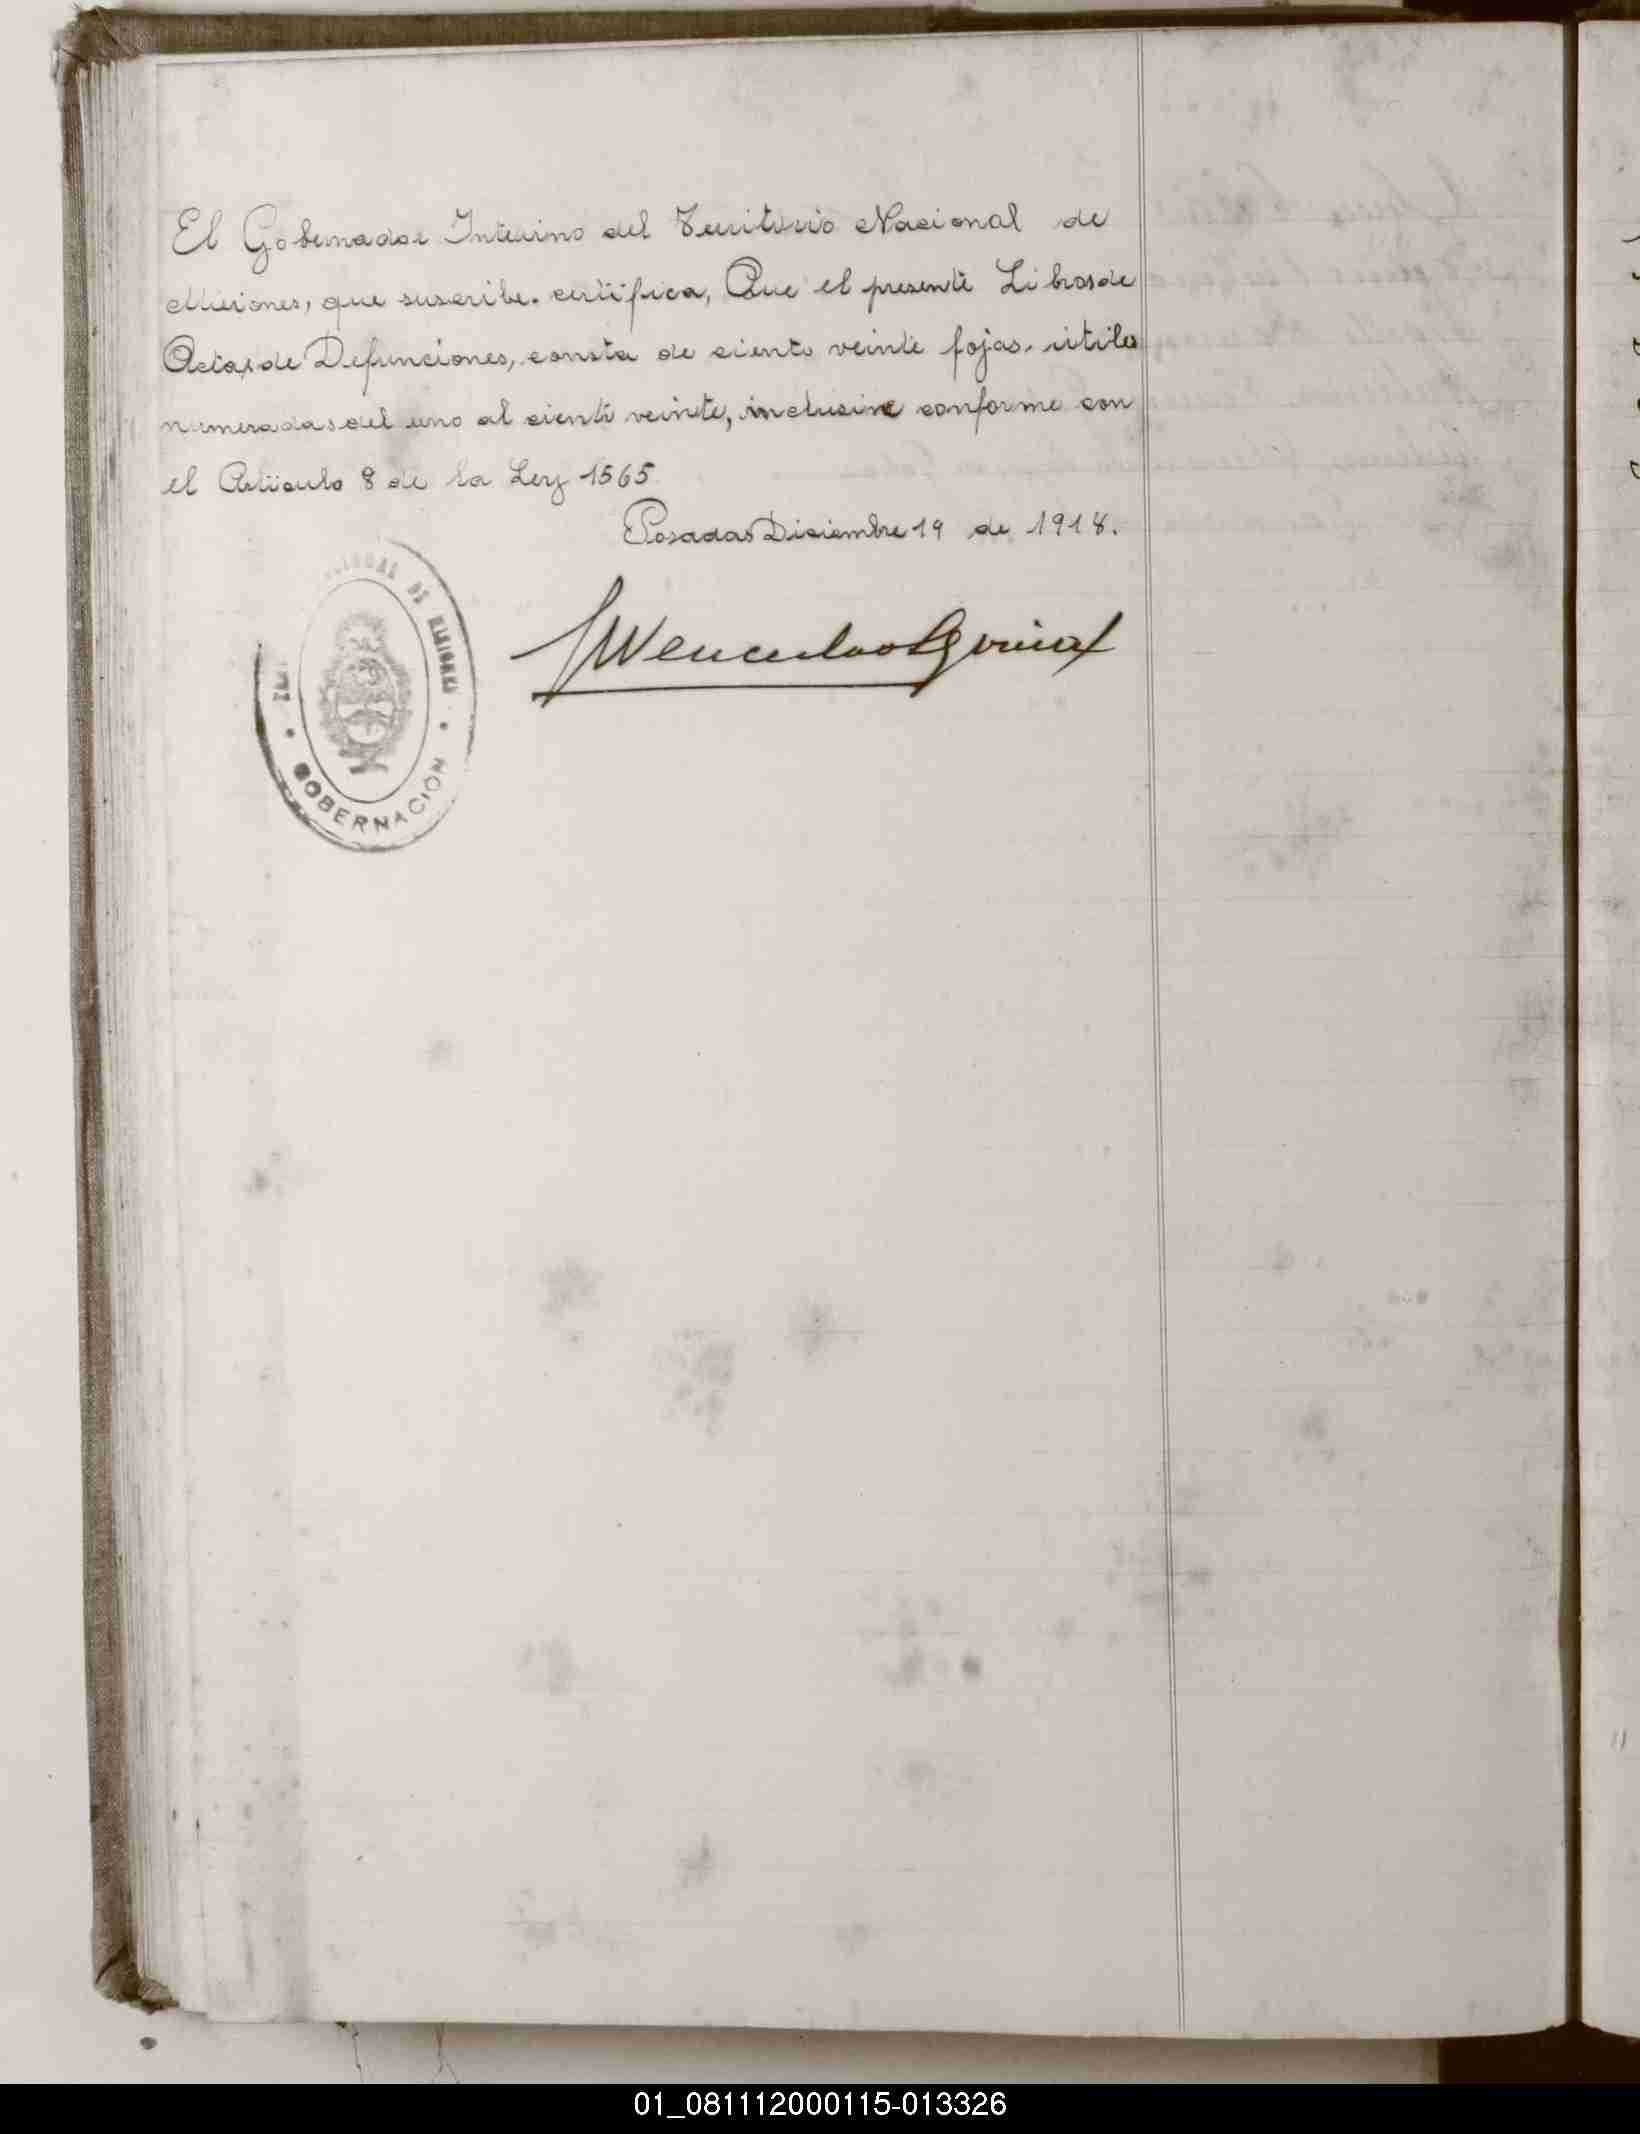 El Gobernador Interino del Territorio Nacional de
Misiones, que suscribe. certifica, Que el presente Libros de
Actas de Defunciones, consta de ciento veinte fojas. utiles
numeradas del uno al ciento veinte, inclusive conforme con
el Artículo 8 de la Ley 1565
Posadas Diciembre 19 de 1918.
DE MISIONES
GOBERNACION
01_081112000115-013326